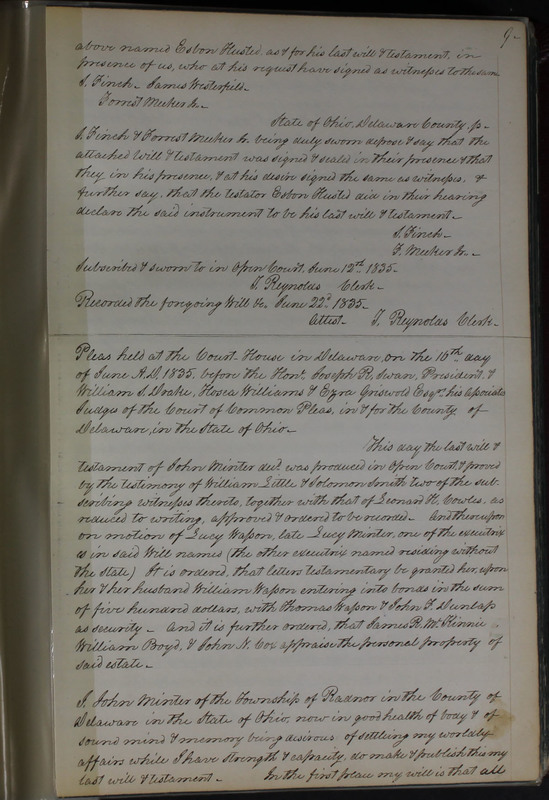 9-
above named Esbon Husted, as & for his last will & testament, in
presence of us, who at his request have signed as witnesses to the same
S. Finch - James Westerfield -
Forrest Meeker Jr. -
State of Ohio, Delaware County, ss -
S. Finch & Forrest Meeker Jr. being duly sworn depose & say that the
attached Will & testament was signed & sealed in their presence & that
they in his presence, & at his desire signed the same as witnesses, &
further say, that the testator Esbon Husted did in their hearing
declare the said instrument to be his last will & testament -
S. Finch -
F. Meeker Jr. -
Subscribed & sworn to in Open Court, June 12th 1835 -
T. Reynolds Clerk -
Recorded the foregoing Will &c. June 22d 1835 -
Attest - T. Reynolds Clerk -
Pleas held at the Court House in Delaware, on the 16th day
of June A.D. 1835, before the Hon. Joseph R. Swan, President, &
William S. Drake, Hosea Williams & Ezra Griswold Esqrs. his Associate
Judges of the Court of Common Pleas, in & for the County of
Delaware, in the State of Ohio -
This day the last will &
testament of John Minter decd. was produced in Open Court, & proved
by the testimony of William Little & Solomon Smith two of the sub-
scribing witnesses thereto, together with that of Leonard H. Cowles, as
reduced to writing, approved & ordered to be recorded - And thereupon
on motion of Lucy Wasson, late Lucy Minter, one of the executrix
as in said Will named (the other executrix named residing without
the State) It is ordered, that letters testamentary be granted her, upon
her & her husband William Wasson entering into bonds in the sum
of five hundred dollars, with Thomas Wasson & John F. Dunlap
as security - And it is further ordered, that James R. McKinnie
William Boyd, & John N. Cox appraise the personal property of
said estate -
I, John Minter of the Township of Radnor in the County of
Delaware in the State of Ohio, now in good health of body & of
sound mind & memory being desirous of settling my worldly
affairs while I have strength & capacity, do make & publish this my
last will & testament - In the first place my will is that all